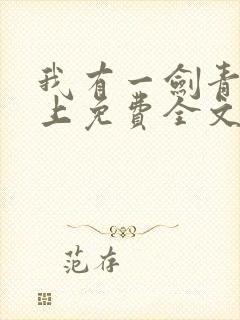 我有一剑青
上免费全文
范存